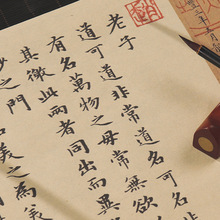 老子
道可道非常道名可
有名萬物之母常無欲
其徼此兩者同出而異
妙之門
美之為美